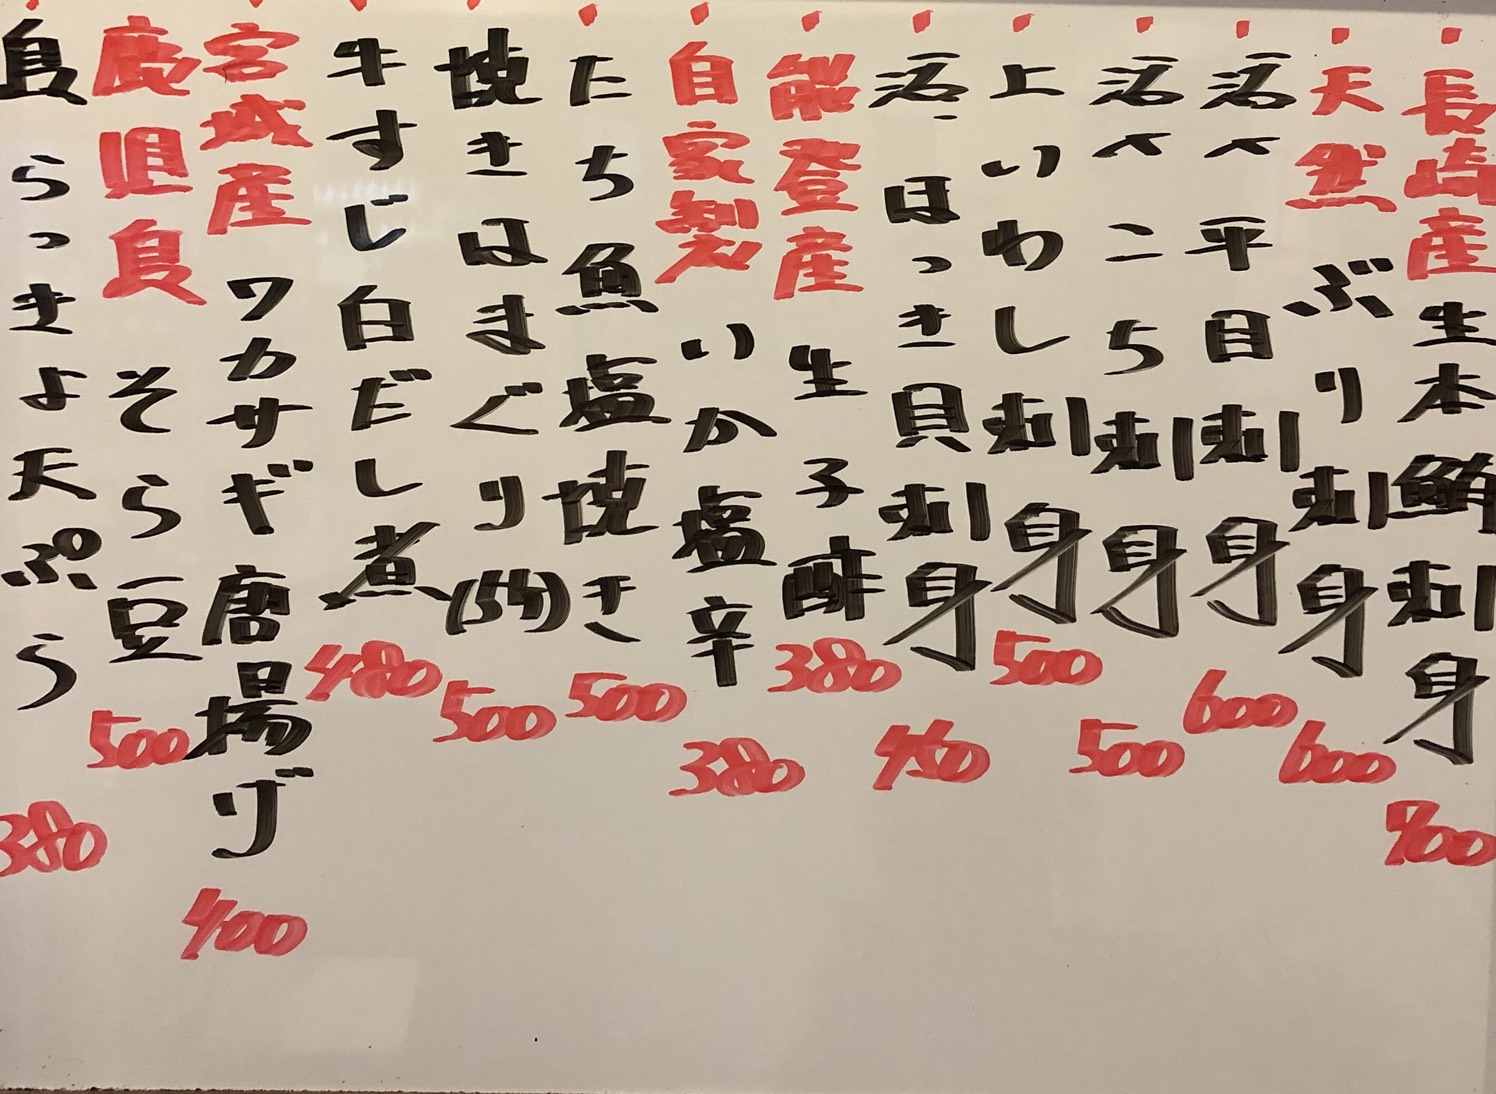 長崎産 生本鮪刺身 700
天然 ぶり刺身 600
活〆 平目刺身 600
活〆 こち刺身 500
上いわし刺身 500
活〆 ほっき貝刺身 450
能登産 生子酢 380
自家製 いか塩辛 380
たち魚塩焼き 500
焼きはまぐり(5ケ) 500
牛すじ白だし煮 480
宮城産 ワカサギ唐揚げ 400
鹿児島 そら豆 500
島らっきょ天ぷら 380